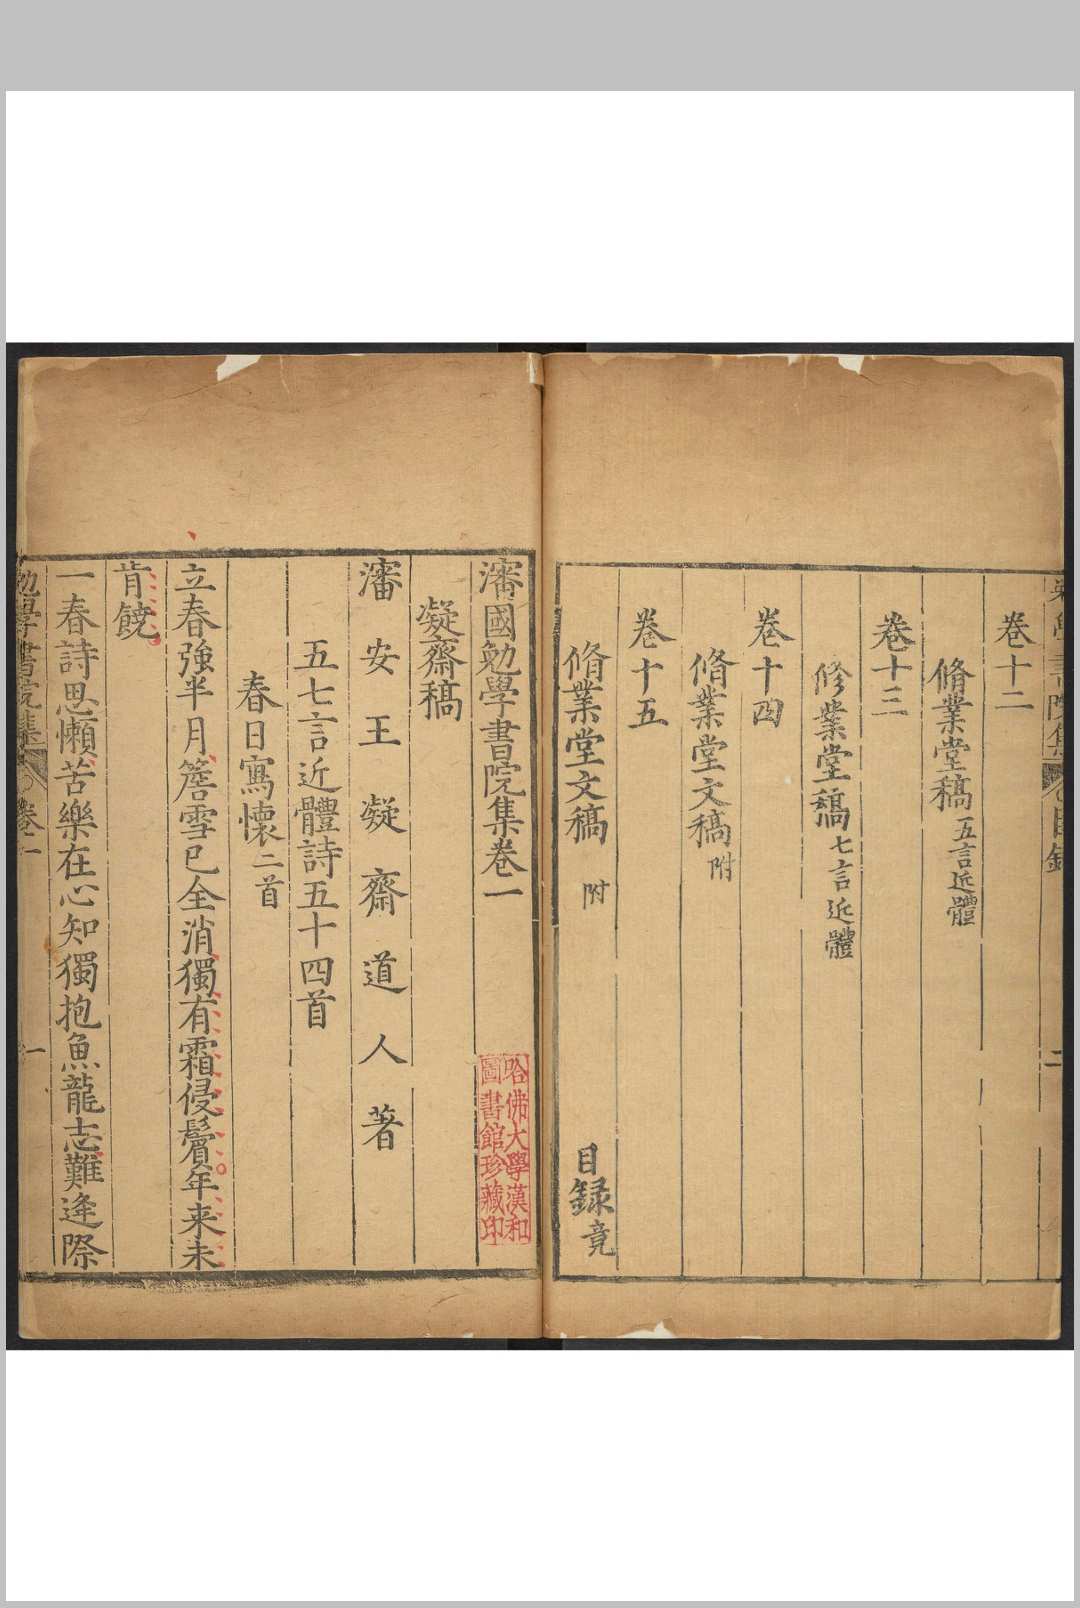 卷十二
脩業堂稿 五言近體
卷十三
修業堂稿 七言近體
卷十四
脩業堂文稿 附
卷十五
脩業堂文稿 附
目録竟
瀋國勉學書院集卷一
哈佛大學漢和
圖書館珍藏印
凝齋稿
瀋安王凝齋道人著
五七言近體詩五十四首
春日寫懷二首
立春強半月簷雪已全消獨有霜侵鬢年来未
肯饒
一春詩思懶苦樂在心知獨抱魚龍志難逢際
勉學書院集 卷一 一